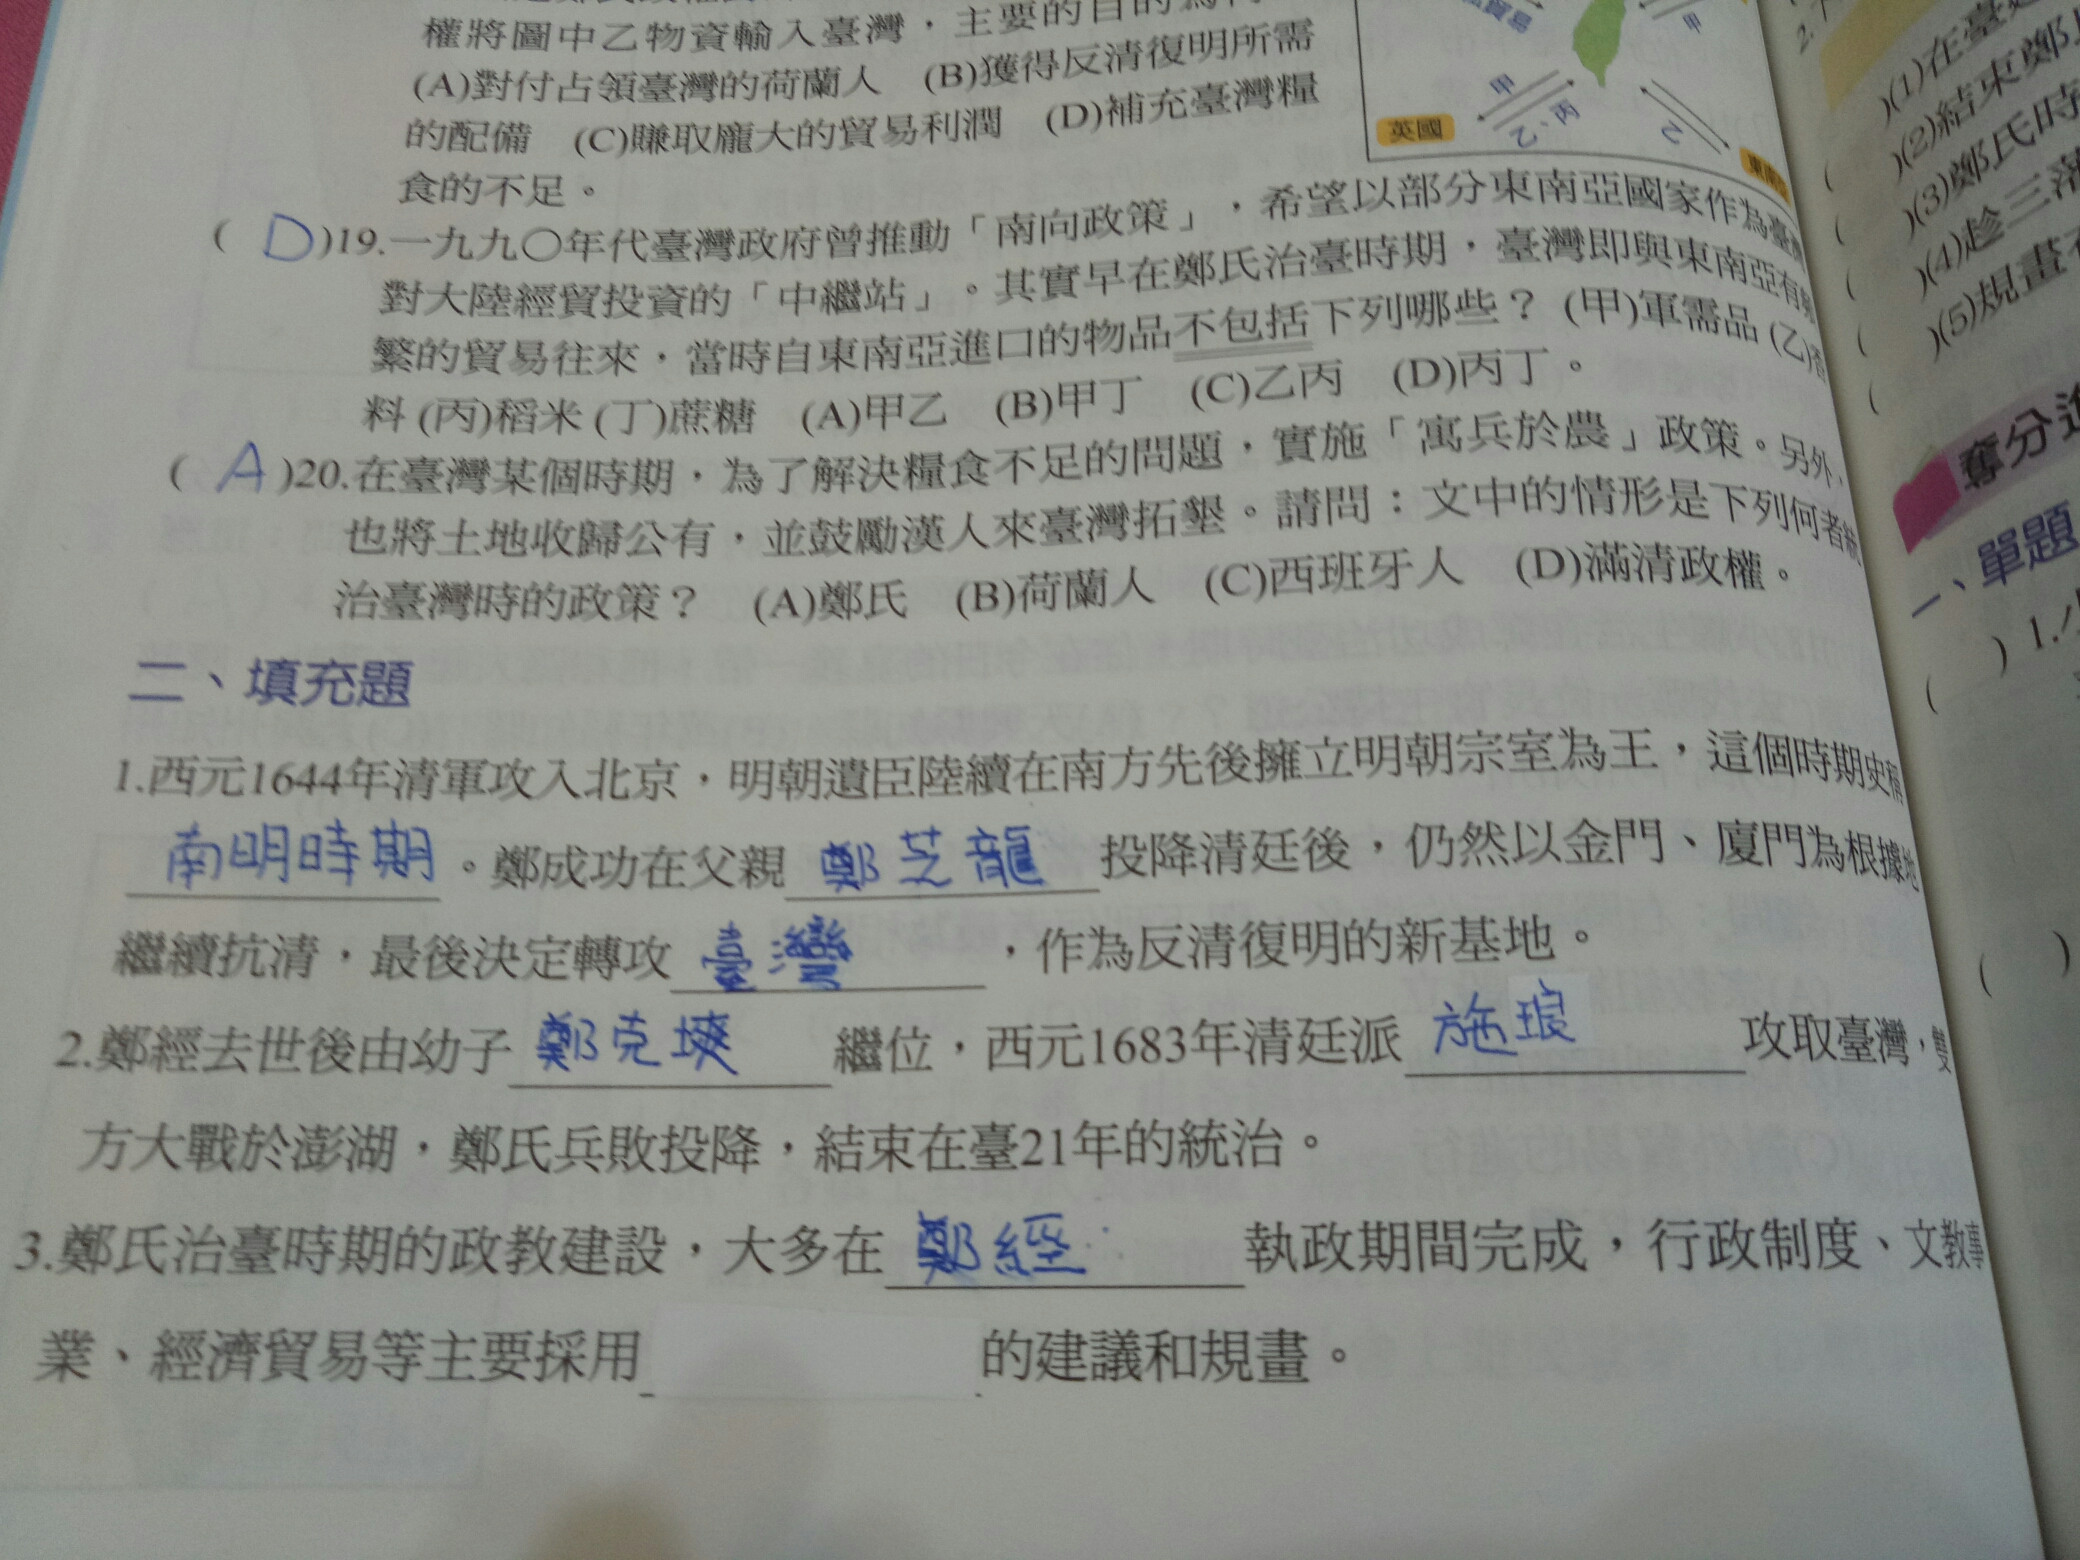 權將圖中乙物資輸入臺灣，主要的目的為何
(A)對付占領臺灣的荷蘭人　(B)獲得反清復明所需
的配備　(C)賺取龐大的貿易利潤　(D)補充臺灣糧
食的不足。
貿易
甲
甲
乙、丙
乙
英國
( D )19.一九九〇年代臺灣政府曾推動「南向政策」，希望以部分東南亞國家作為臺灣
對大陸經貿投資的「中繼站」。其實早在鄭氏治臺時期，臺灣即與東南亞有頻
繁的貿易往來，當時自東南亞進口的物品不包括下列哪些？ (甲)軍需品 (乙)香
料 (丙)稻米 (丁)蔗糖　(A)甲乙　(B)甲丁　(C)乙丙　(D)丙丁。
( A )20.在臺灣某個時期，為了解決糧食不足的問題，實施「寓兵於農」政策。另外，
也將土地收歸公有，並鼓勵漢人來臺灣拓墾。請問：文中的情形是下列何者統
治臺灣時的政策？　(A)鄭氏　(B)荷蘭人　(C)西班牙人　(D)滿清政權。
二、填充題
1.西元1644年清軍攻入北京，明朝遺臣陸續在南方先後擁立明朝宗室為王，這個時期史稱
南明時期。鄭成功在父親鄭芝龍投降清廷後，仍然以金門、廈門為根據地
繼續抗清，最後決定轉攻臺灣，作為反清復明的新基地。
2.鄭經去世後由幼子鄭克塽繼位，西元1683年清廷派施琅攻取臺灣，雙
方大戰於澎湖，鄭氏兵敗投降，結束在臺21年的統治。
3.鄭氏治臺時期的政教建設，大多在鄭經執政期間完成，行政制度、文教事
業、經濟貿易等主要採用　　　的建議和規畫。
2.
)(1)在臺
)(2)結束鄭
)(3)鄭氏時
)(4)趁三藩
)(5)規畫
奪分進
一、單題
( ) 1.
( )